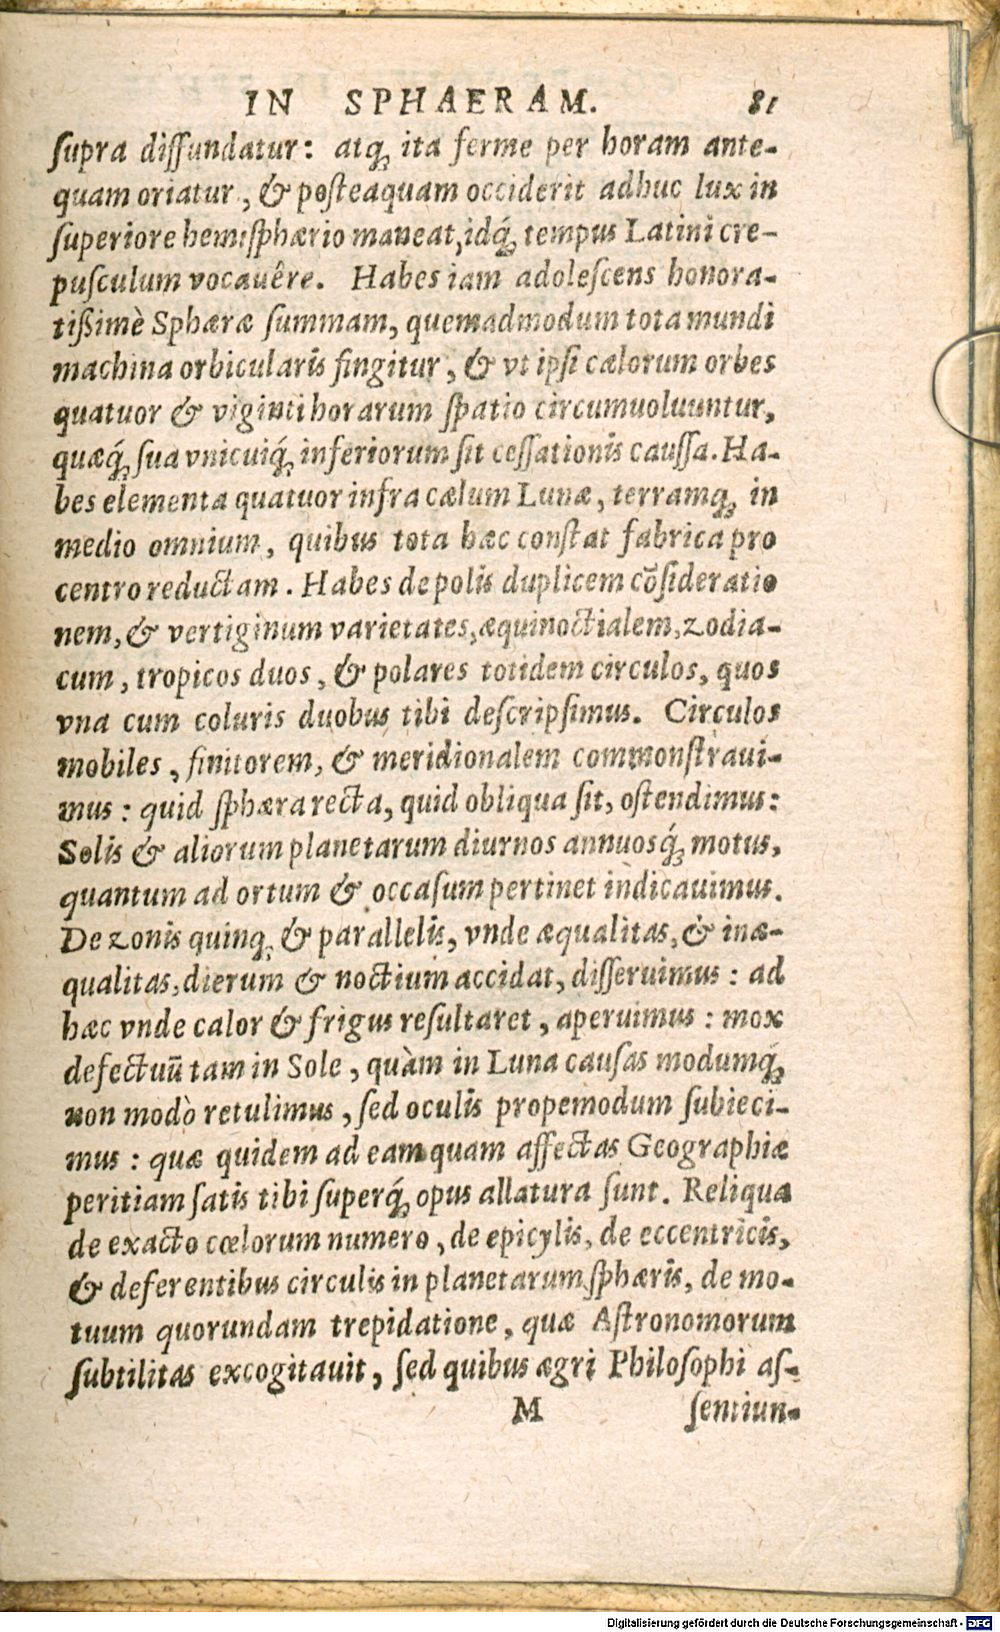 IN SPHAERAM. 81
ſupra diſſundatur: atq́; ita ferme per horam ante-
quam oriatur, & poſteaquam occiderit adhuc lux in
ſuperiore hemiſphærio maneat, idq́; tempus Latini cre-
puſculum vocauêre. Habes iam adoleſcens honora-
tißimè Sphæræ ſummam, quemadmodum tota mundi
machina orbicularis fingitur, & vt ipſi cælorum orbes
quatuor & viginti horarum ſpatio circumuoluuntur,
quæq́; ſua vnicuiq́; inferiorum ſit ceſſationis cauſſa. Ha-
bes elementa quatuor infra cælum Lunæ, terramq́; in
medio omnium, quibus tota hæc conſtat fabrica pro
centro reductam. Habes de polis duplicem cõſideratio
nem, & vertiginum varietates, æquinoctialem, zodia-
cum, tropicos duos, & polares totidem circulos, quos
vna cum coluris duobus tibi deſcripſimus. Circulos
mobiles, finitorem, & meridionalem commonſtraui-
mus: quid ſphæra recta, quid obliqua ſit, oſtendimus:
Solis & aliorum planetarum diurnos annuosq́; motus,
quantum ad ortum & occaſum pertinet indicauimus.
De zonis quinq; & parallelis, vnde æqualitas, & inæ-
qualitas, dierum & noctium accidat, diſſeruimus: ad
hæc vnde calor & frigus reſultaret, aperuimus: mox
defectuũ tam in Sole, quàm in Luna cauſas modumq́;
non modò retulimus, ſed oculis propemodum ſubieci-
mus: quæ quidem ad eam quam affectas Geographiæ
peritiam ſatis tibi ſuperq́; opus allatura ſunt. Reliqua
de exacto cœlorum numero, de epicylis, de eccentricis,
& deferentibus circulis in planetarum ſphæris, de mo-
tuum quorundam trepidatione, quæ Aſtronomorum
ſubtilitas excogitauit, ſed quibus ægri Philoſophi aſ-
M ſentiun-
Digitalisierung gefördert durch die Deutsche Forschungsgemeinschaft - DFG